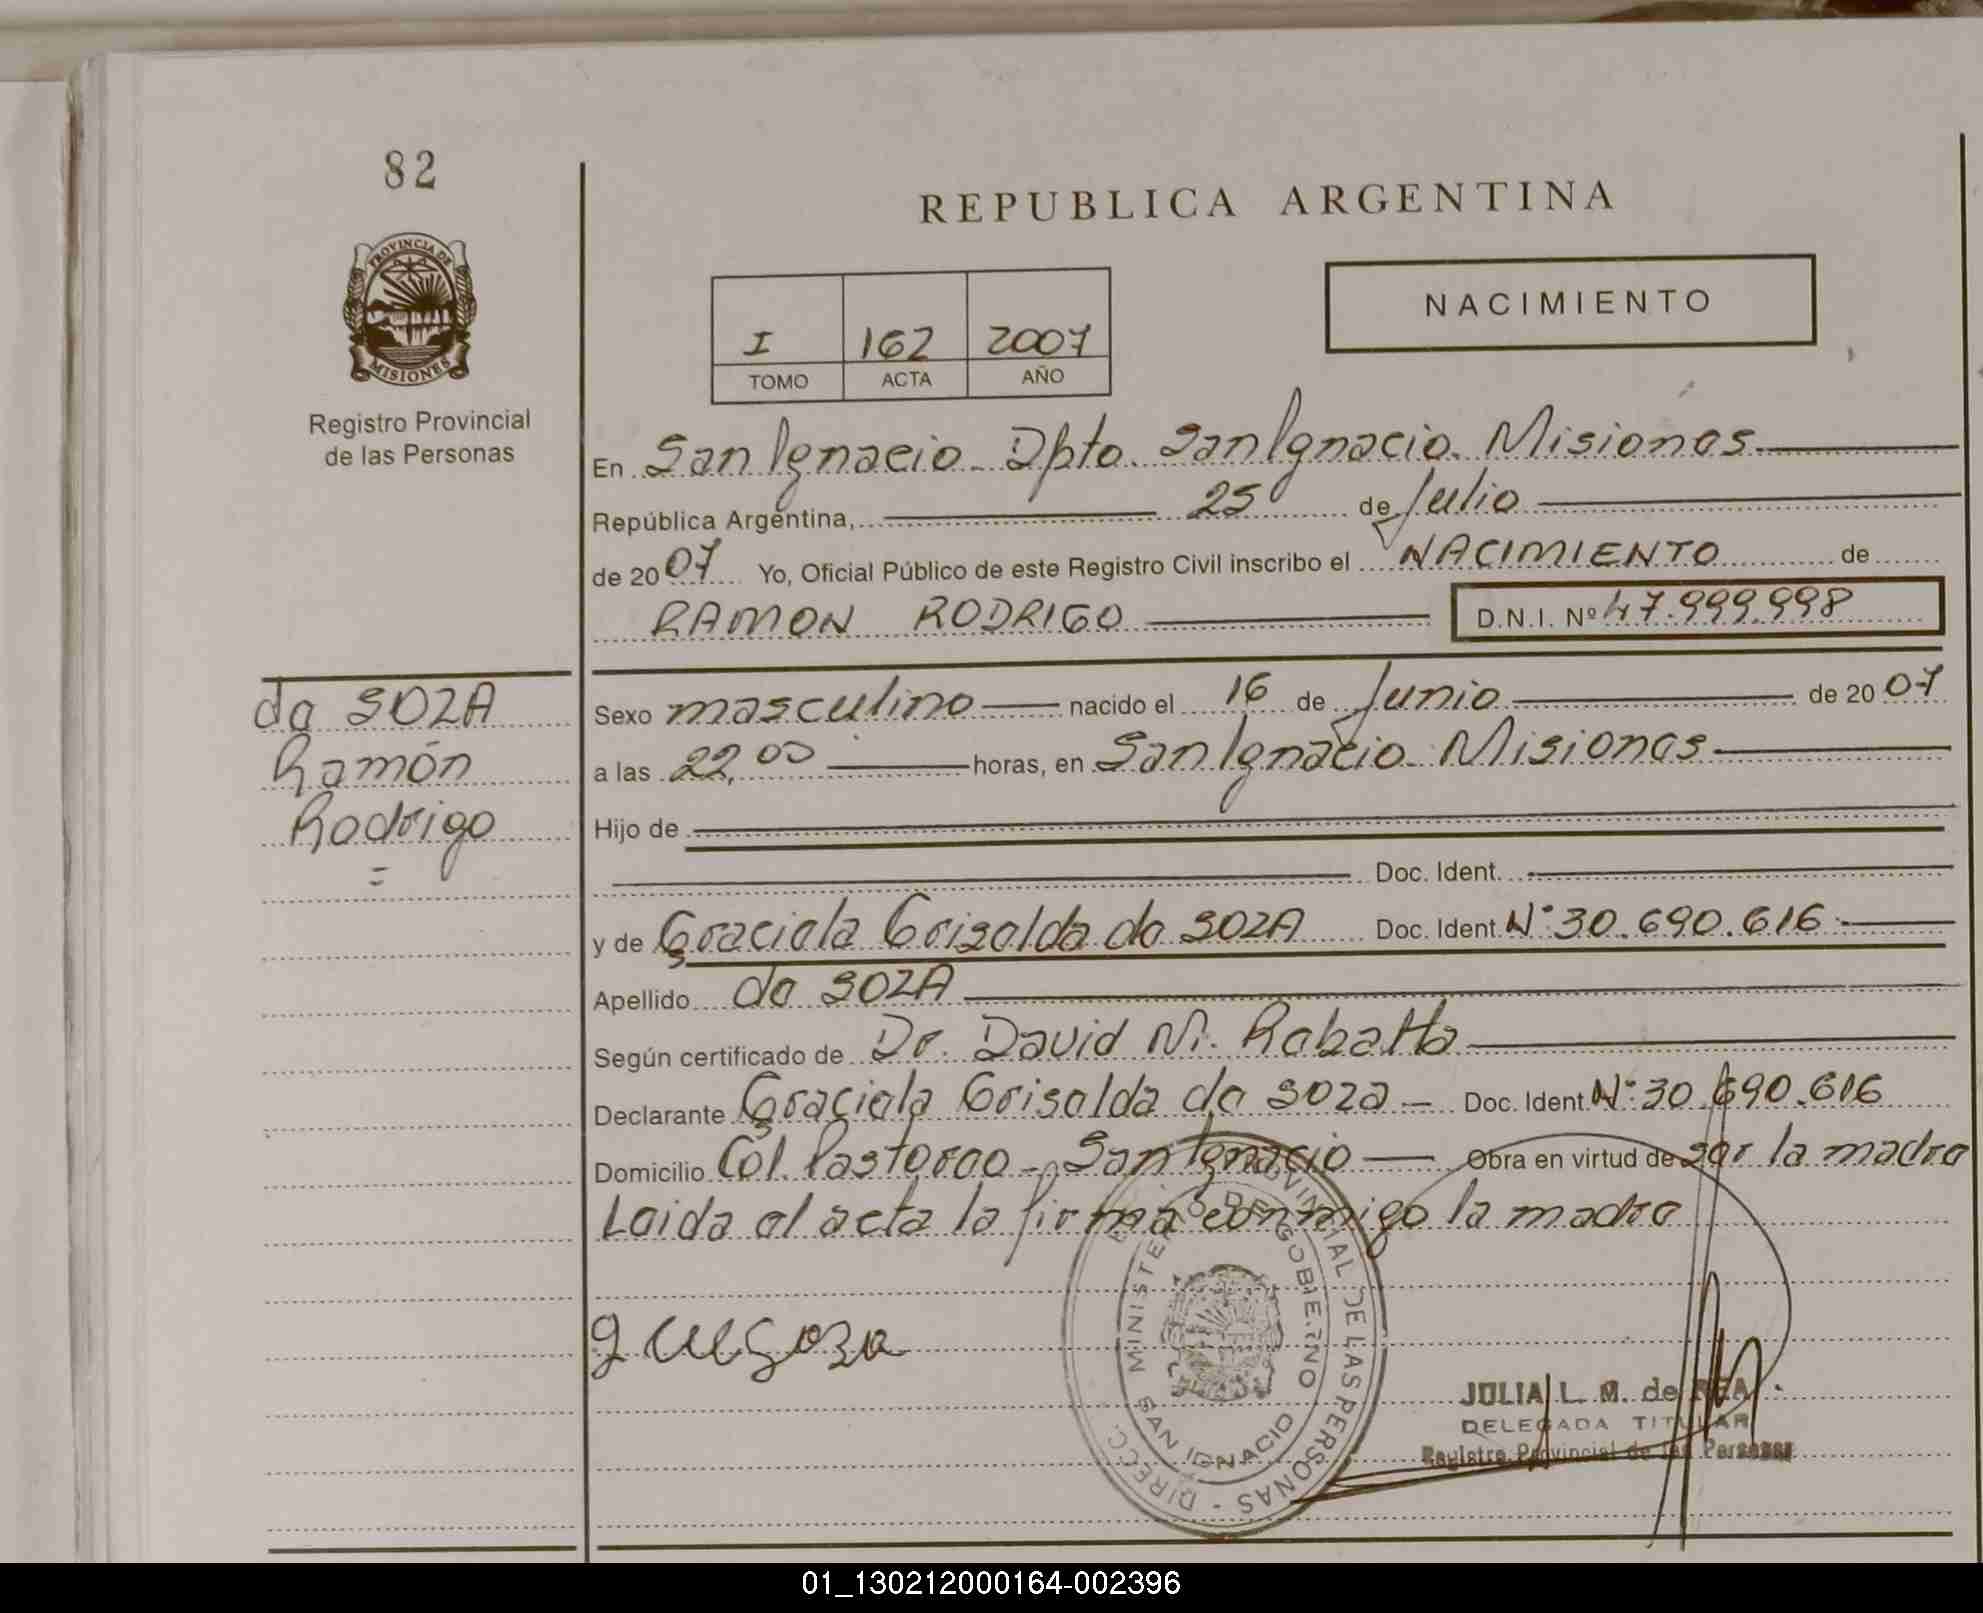 82
REPUBLICA ARGENTINA
PROVINCIA DE
MISIONES
NACIMIENTO
I 162 2007
TOMO ACTA AÑO
Registro Provincial
de las Personas
En San Ignacio. Dpto. San Ignacio. Misiones
República Argentina, 25 de Julio
de 2007 Yo, Oficial Público de este Registro Civil inscribo el NACIMIENTO de
RAMON RODRIGO D.N.I. Nº 47.999.998
de SOZA
Ramón
Rodrigo
=
Sexo masculino nacido el 16 de Junio de 2007
a las 22,00 horas, en San Ignacio. Misiones
Hijo de
Doc. Ident.
y de Graciela Griselda de SOZA Doc. Ident. Nº 30.690.616
Apellido de SOZA
Según certificado de Dr. David N. Rabatto
Declarante Graciela Griselda de Soza Doc. Ident. Nº 30.690.616
Domicilio Col. Pastoreo - San Ignacio Obra en virtud de ser la madre
Leida el acta la firma conmigo la madre
DIRECC. PROVINCIAL DE LAS PERSONAS -
MINISTERIO DE GOBIERNO
SAN IGNACIO
JULIA L. M. de REA
DELEGADA TITULAR
Registro Provincial de las Personas
01_130212000164-002396